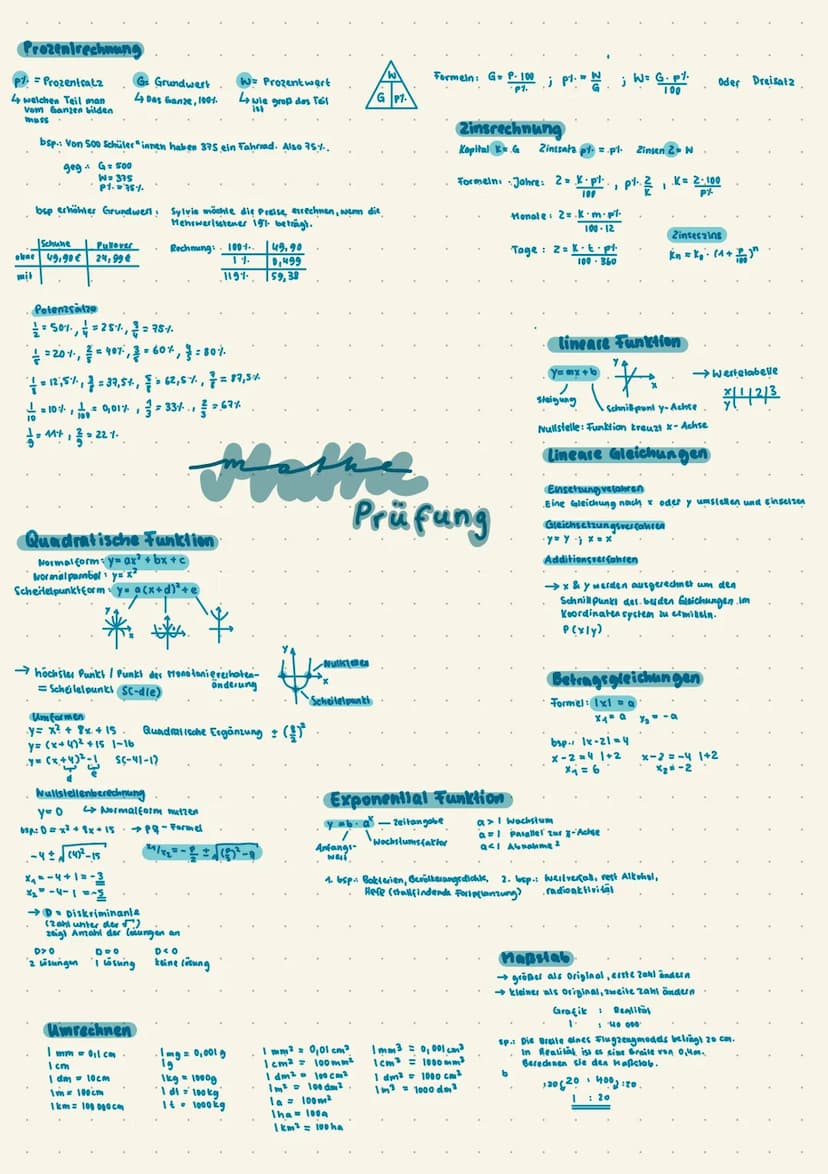 Prozentrechnung
p% = Prozentsatz
↳ welchen Teil man
vom Ganzen bilden
muss
G = Grundwert
↳ Das Ganze, 100%
W = Prozentwert
↳ wie groß das Teil
ist
W
G | p%
Formeln: G = P · 100 / p% ; p% = W / G ; W = G · p% / 100 oder Dreisatz
bsp.: Von 500 Schüler*innen haben 375 ein Fahrrad. Also 75%.
geg.: G = 500
W = 375
p% = 75%
bsp erhöhter Grundwert: Sylvia möchte die Preise errechnen, wenn die
Mehrwertssteuer 19% beträgt.
Schuhe | Pullover
ohne | 49,90€ | 24,99€
mit
Rechnung: 100% | 49,90
1% | 0,499
119% | 59,38
Zinsrechnung
Kapital K = G Zinssatz p% = p% Zinsen Z = W
Formeln: Jahre: Z = K · p% / 100 , p% Z / K , K = Z · 100 / p%
Monate: Z = K · m · p% / 100 · 12
Tage: Z = K · t · p% / 100 · 360
Zinseszins
Kn = K₀ · (1 + p/100)ⁿ
Potenzsätze
1/2 = 50%, 1/4 = 25%, 3/4 = 75%
1/5 = 20%, 2/5 = 40%, 3/5 = 60%, 4/5 = 80%
1/8 = 12,5%, 3/8 = 37,5%, 5/8 = 62,5%, 7/8 = 87,5%
1/10 = 10%, 1/100 = 0,01%, 1/3 = 33%, 2/3 = 67%
1/9 = 11%, 2/9 = 22%
lineare Funktion
y = mx + b
Steigung
Schnittpunt y-Achse
y
x
→ Wertetabelle
x | 1 | 2 | 3
y |
Nullstelle: Funktion kreuzt x-Achse
Lineare Gleichungen
Einsetzungverfahren
Eine Gleichung nach x oder y umstellen und einsetzen
Gleichsetzungsverfahren
y = y ; x = x
Additionsverfahren
→ x & y werden ausgerechnet um den
Schnittpunkt der beiden Gleichungen im
Koordinatensystem zu ermitteln.
P(x/y)
mathe
Mathe
Prüfung
Quadratische Funktion
Normalform: y = ax² + bx + c
Normalparabel: y = x²
Scheitelpunktform: y = a(x+d)² + e
→ höchster Punkt / Punkt der Monotonieverhalten-
änderung
= Scheitelpunkt S(-d|e)
y
x
Nullstellen
Scheitelpunkt
Umformen
y = x² + 8x + 15 Quadratische Ergänzung ± (8/2)²
y = (x+4)² + 15 |-16
y = (x+4)² - 1 S(-4|-1)
d e
Nullstellenberechnung
y = 0 ↳ Normalform nutzen
bsp: 0 = x² + 8x + 15 → pq-Formel
-4 ± √(4)² - 15
x1/x2 = -p/2 ± √(p/2)² - q
x₁ = -4 + 1 = -3
x₂ = -4 - 1 = -5
→ D = Diskriminante
(Zahl unter der √)
zeigt Anzahl der Lösungen an
D > 0 D = 0 D < 0
2 Lösungen 1 Lösung keine Lösung
Betragsgleichungen
Formel: |x| = a
x₁ = a x₂ = -a
bsp.: |x-2| = 4
x - 2 = 4 |+2 x - 2 = -4 |+2
x₁ = 6 x₂ = -2
Exponential Funktion
y = b · aˣ — Zeitangabe
Anfangs-
wert
Wachstumsfaktor
a > 1 Wachstum
a = 1 Parallel zur x-Achse
a < 1 Abnahme
1. bsp: Bakterien, Bevölkerungsdichte,
Hefe (stattfindende Fortpflanzung)
2. bsp: Wertverfall, rest Alkohol,
radioaktivität
Maßstab
→ größer als Original, erste Zahl ändern
→ kleiner als Original, zweite Zahl ändern
Grafik : Realität
1 : 40 000
sp.: Die Breite eines Flugzeugmodels beträgt 20 cm.
In Realität ist es eine Breite von 0,4m.
Berechnen sie den Maßstab.
b
:20 ( 20 : 400 ) :20
1 : 20
Umrechnen
1 mm = 0,1 cm
1 cm
1 dm = 10cm
1m = 100cm
1km = 100 000cm
1mg = 0,001g
1g
1kg = 1000g
1 dt = 100kg
1 t = 1000kg
1 mm² = 0,01 cm²
1cm² = 100mm²
1 dm² = 100cm²
1m² = 100dm²
1a = 100m²
1ha = 100a
1 km² = 100ha
1mm³ = 0,001cm³
1cm³ = 1000mm³
1 dm³ = 1000 cm³
1m³ = 1000dm³